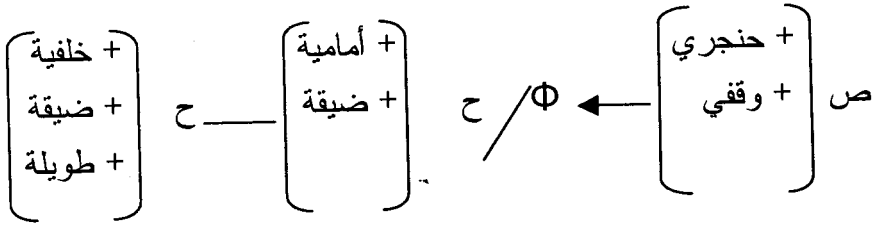 ص [+ حنجري + وقفي] ← Φ / ح [+ أمامية + ضيقة] ___ ح [+ خلفية + ضيقة + طويلة]